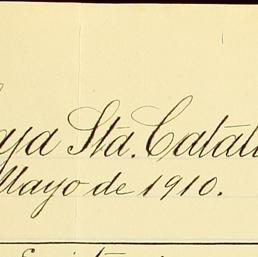 aya Sta. Catali
Mayo de 1910.